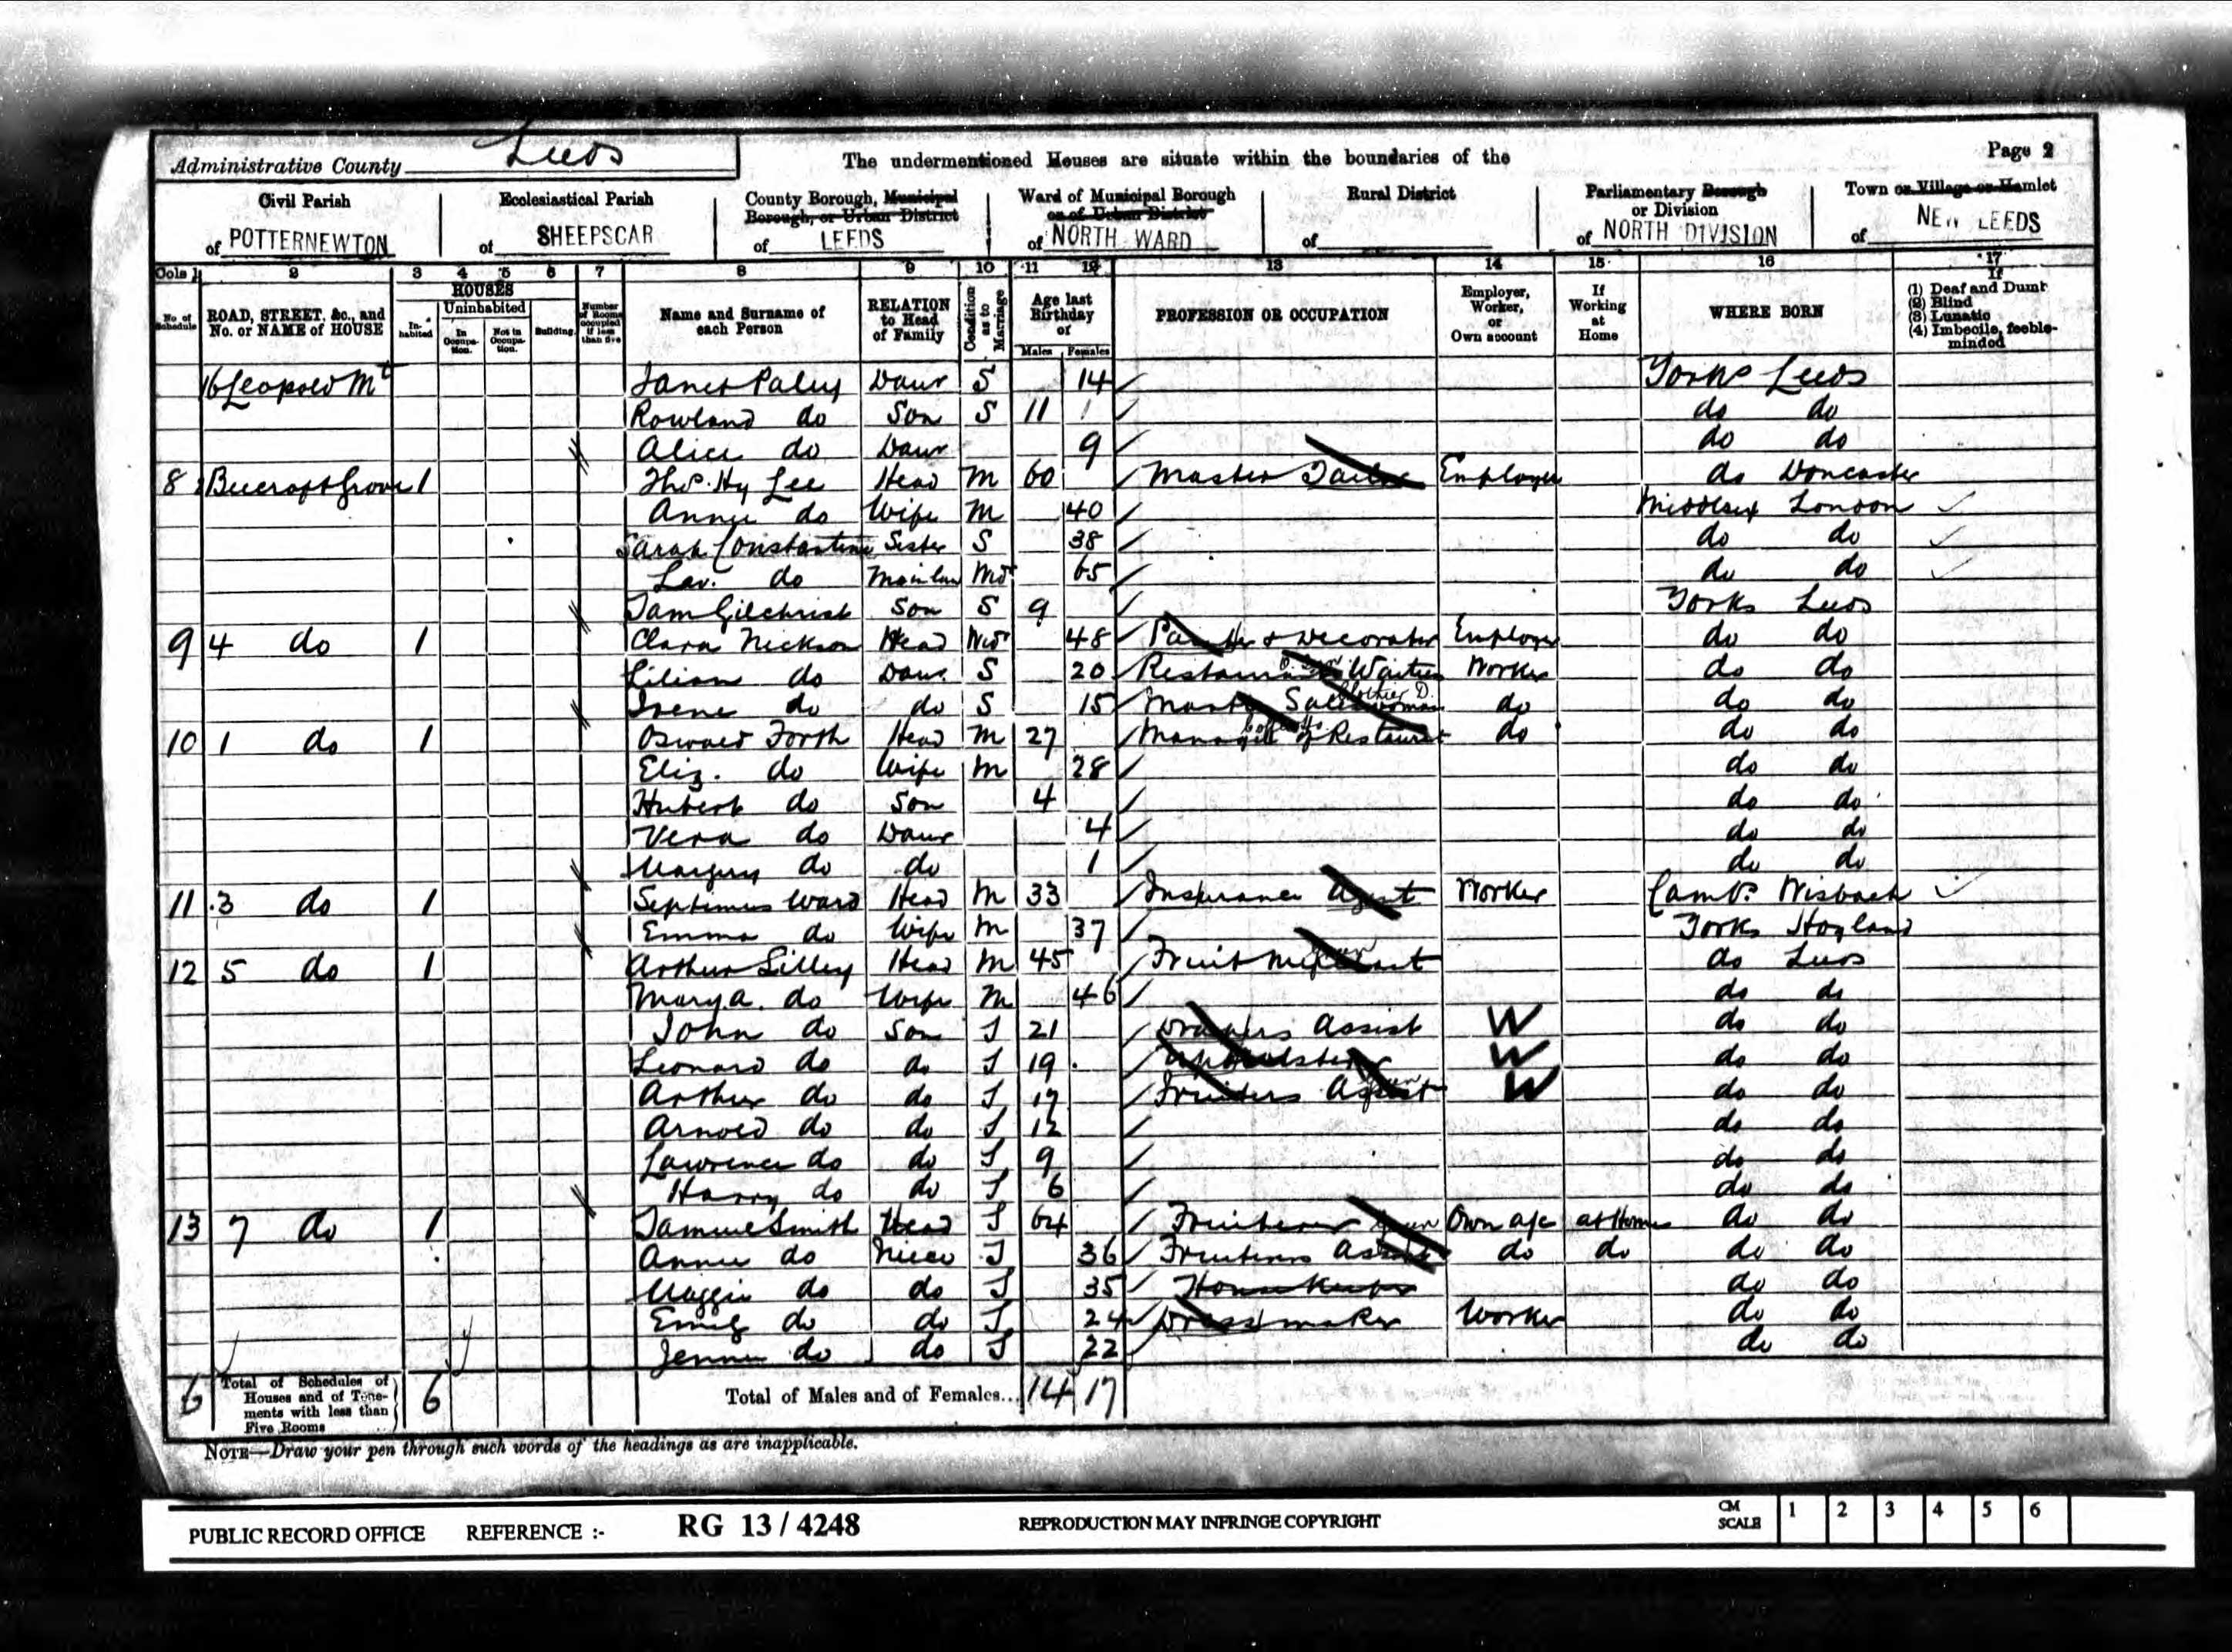 Administrative County Leeds
The undermentioned Houses are situate within the boundaries of the
Page 2
Civil Parish
of POTTERNEWTON
Ecclesiastical Parish
of SHEEPSCAR
County Borough, Municipal
Borough, or Urban District
of LEEDS
Ward of Municipal Borough
or of Urban District
of NORTH WARD
Rural District
of
Parliamentary Borough
or Division
of NORTH DIVISION
Town or Village or Hamlet
of NEW LEEDS
Cols 1 2 3 4 5 6 7 8 9 10 11 12 13 14 15 16 17
No. of Schedule
ROAD, STREET, &c., and No. or NAME of HOUSE
HOUSES
In-habited
Uninhabited
In Occupa-tion.
Not in Occupa-tion.
Building.
Number of Rooms occupied if less than five
Name and Surname of each Person
RELATION to Head of Family
Condition as to Marriage
Age last Birthday of
Males Females
PROFESSION OR OCCUPATION
Employer, Worker, or Own account
If Working at Home
WHERE BORN
If
(1) Deaf and Dumb
(2) Blind
(3) Lunatic
(4) Imbecile, feeble-minded
16 Leopold Mt Janet Paley Daur S 14 Yorks Leeds
Rowland do Son S 11 do do
Alice do Daur 9 do do
8 Beecroft Grove 1 Thos. Hy Lee Head M 60 Master Tailor Employer do Doncaster
Annie do Wife M 40 Middlesex London
Sarah Constantine Sister S 38 do do
Lav. do 65 do do
Sam Gilchrist Son S 9 Yorks Leeds
9 4 do 1 Clara Nickson Head Wid 48 Painter & Decorator Employer do do
Lilian do Daur S 20 Restaurant Waitress Worker do do
Irene do do S 15 Saleswoman Clothier D. do do do
10 1 do 1 Oswald Forth Head M 27 Manager of Restaurant do do do
Eliz. do Wife M 28 do do
Hubert do Son 4 do do
Vera do Daur 4 do do
Margery do do 1 do do
11 3 do 1 Septimus Ward Head M 33 Insurance Agent Worker Cambs Wisbach
Emma do Wife M 37 Yorks Hoyland
12 5 do 1 Arthur Lilley Head M 45 Fruit Merchant do Leeds
Mary A. do Wife M 46 do do
John do Son S 21 Drapers Assist W do do
Leonard do do S 19 Upholsterer W do do
Arthur do do S 17 Fruiters Assist W do do
Arnold do do S 12 do do
Lawrence do do S 9 do do
Harry do do S 6 do do
13 7 do 1 Samuel Smith Head S 64 Fruiterer Own a/c at Home do do
Annie do Niece S 36 Fruiterers Assist do do do do
Maggie do do S 35 Housekeeper do do
Emily do do S 24 Dressmaker Worker do do
Jennie do do S 22 do do
6 Total of Schedules of Houses and of Tene-ments with less than Five Rooms 6 Total of Males and of Females... 14 17
NOTE—Draw your pen through such words of the headings as are inapplicable.
PUBLIC RECORD OFFICE REFERENCE :- RG 13 / 4248 REPRODUCTION MAY INFRINGE COPYRIGHT CM SCALE 1 2 3 4 5 6